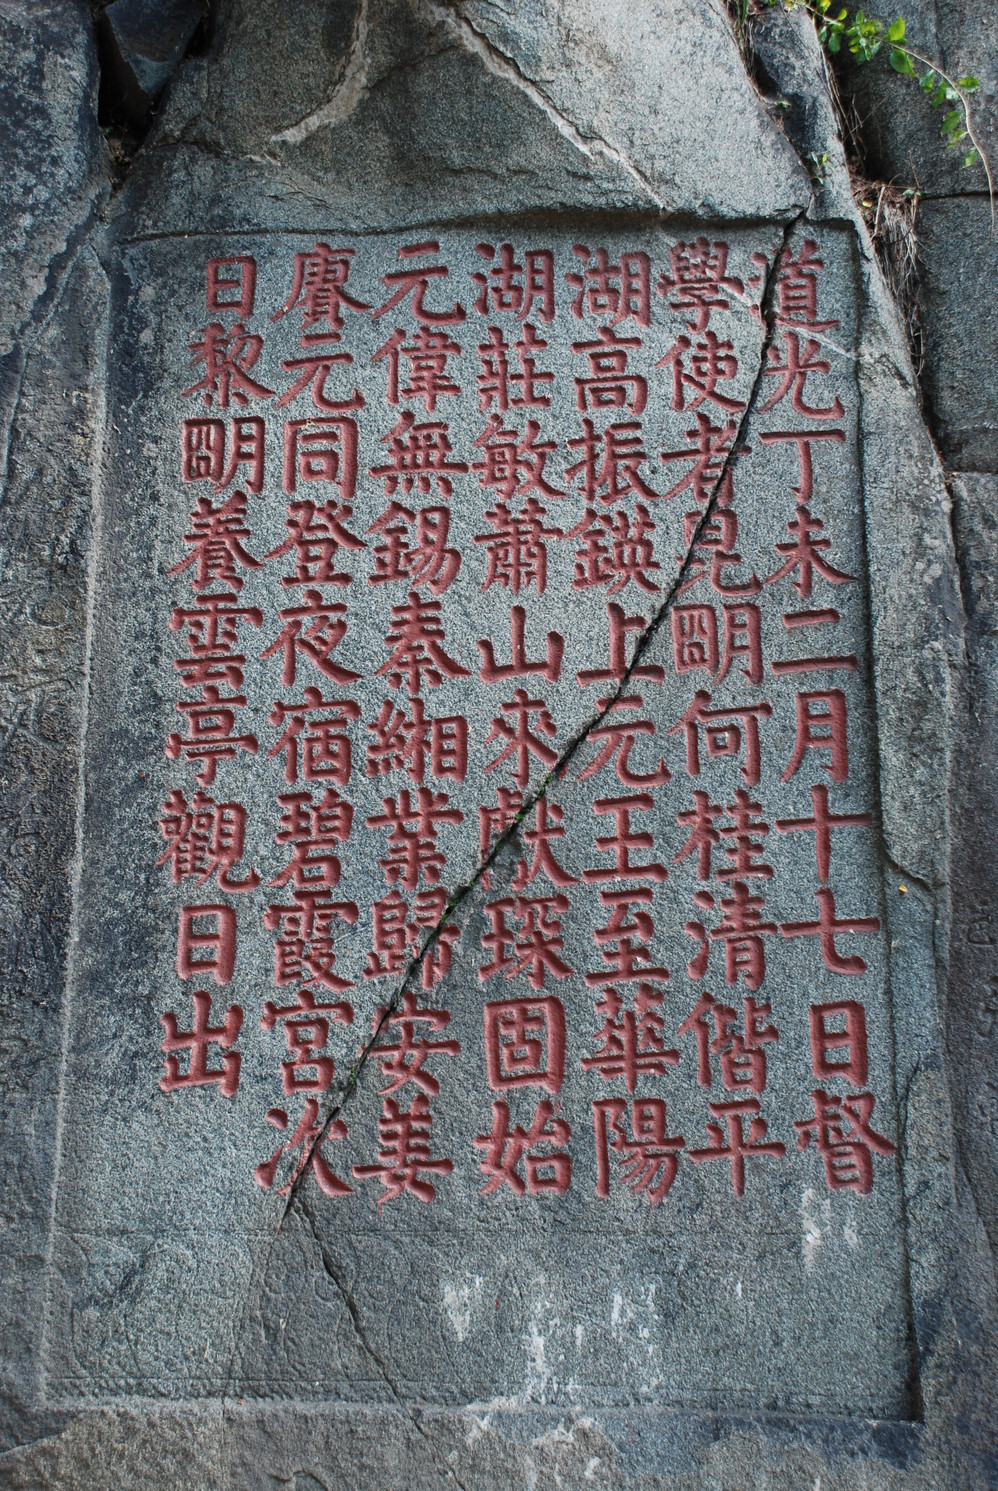 道光丁未二月十七日督
學使者昆朙何桂清偕平
湖高振鍈上元王至華陽
湖莊敏蕭山來獻琛固始
元偉無錫秦緗業歸安姜
賡元同登夜宿碧霞宮次
日黎朙養雲亭觀日出